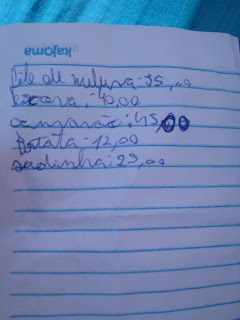 kajoma
file de mussa: 35,00
Escova: 40,00
camarão: 45,00
Batata: 12,00
sardinha: 29,00